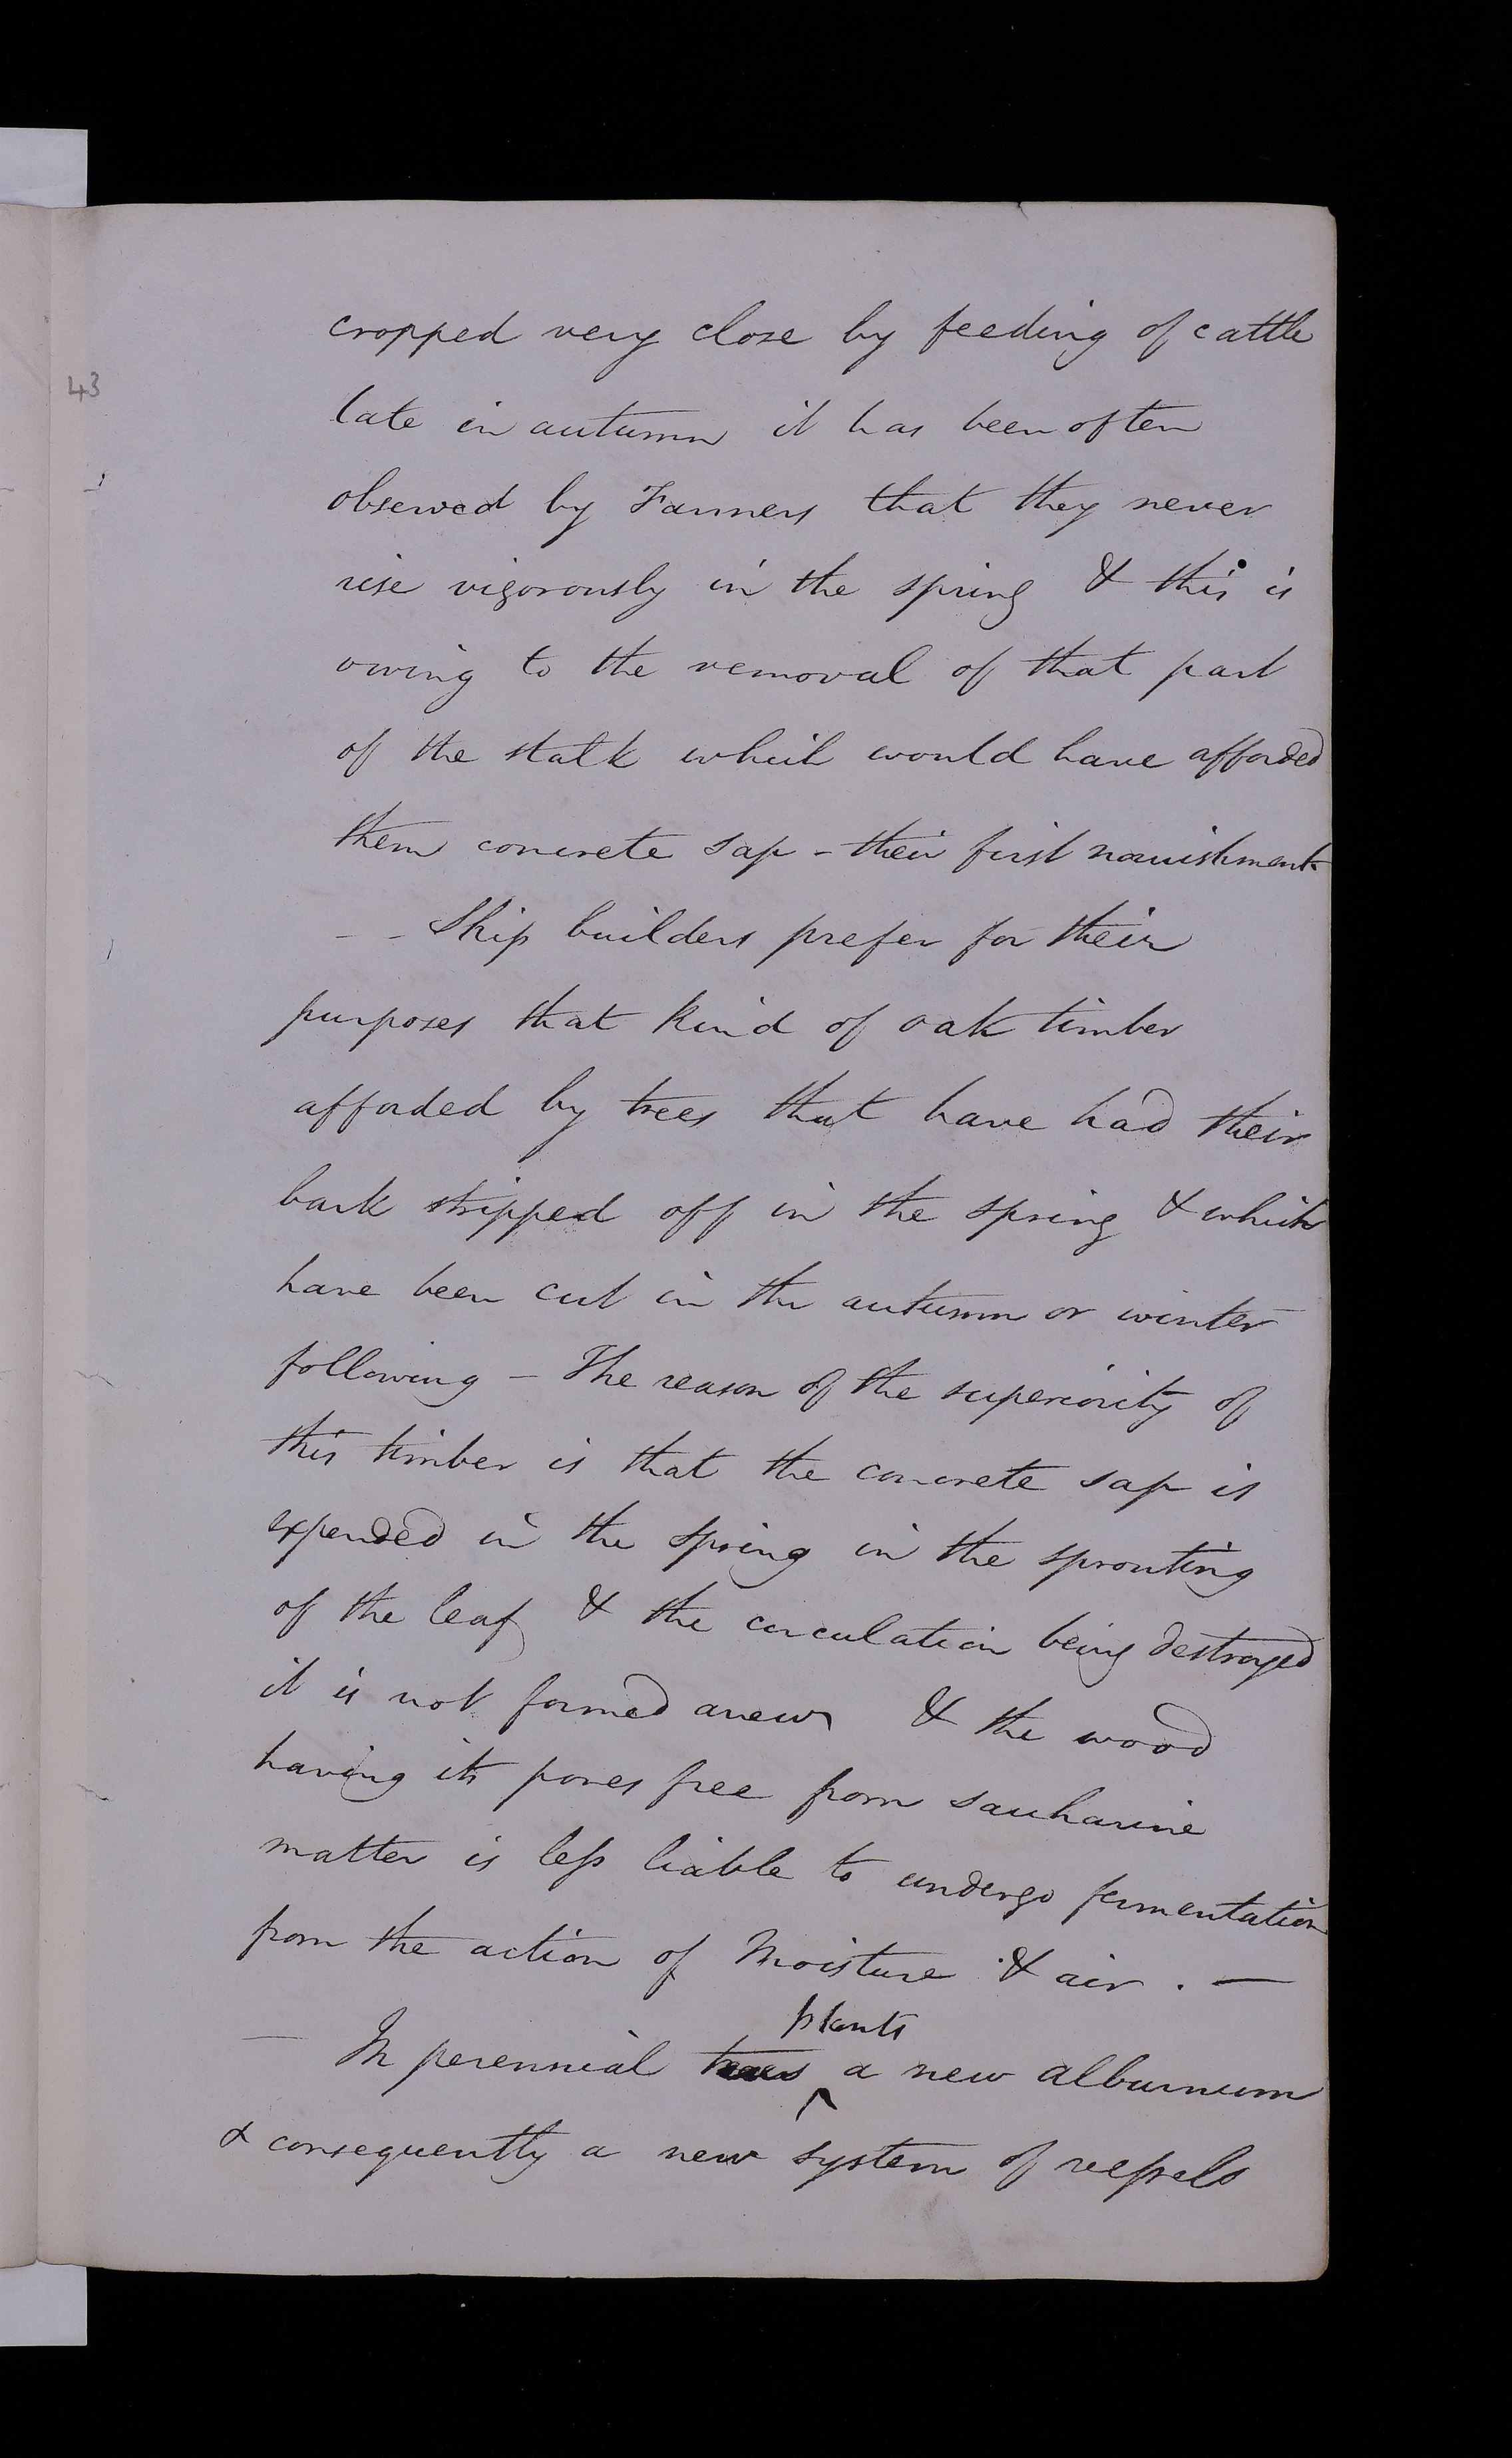 43
cropped very close by feeding of cattle
late in autumn it has been often
observed by Farmers that they never
rise vigorously in the spring & this is
owing to the removal of that part
of the stalk which would have afforded
them concrete sap - their first nourishment
- - Ship builders prefer for their
purposes that kind of oak timber
afforded by trees that have had their
bark stripped off in the spring & which
have been cut in the autumn or winter
following - The reason of the superiority of
this timber is that the concrete sap is
expended in the spring in the sprouting
of the leaf & the circulation being destroyed
it is not formed anew & the wood
having its pores free from saccharine
matter is less liable to undergo fermentation
from the action of Moisture & air . —
plants
— In perennial trees ^ a new alburnum
& consequently a new system of vessels